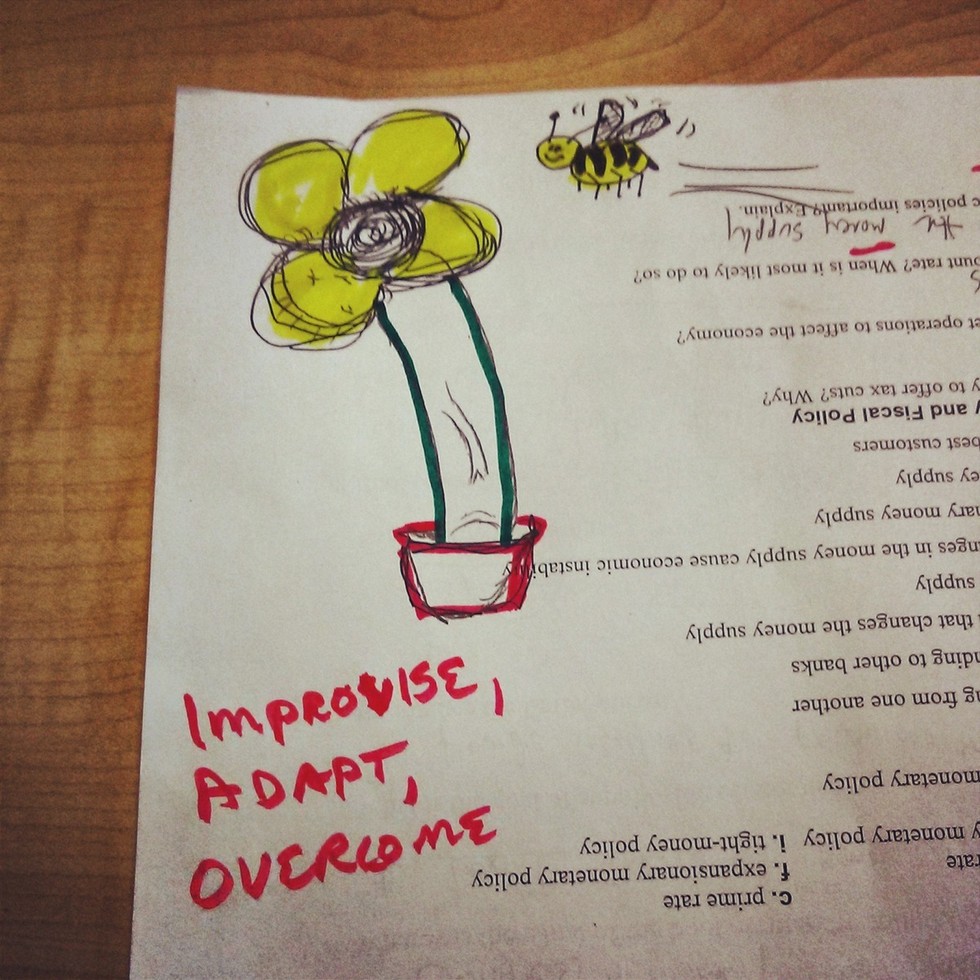 IMPROVISE,
ADAPT,
OVERCOME
c. prime rate
rate f. expansionary monetary policy
monetary policy i. tight-money policy
monetary policy
from one another
to other banks
that changes the money supply
supply
in the money supply cause economic instability
money supply
supply
best customers
and Fiscal Policy
to offer tax cuts? Why?
operations to affect the economy?
rate? When is it most likely to do so?
the money supply
policies important? Explain.